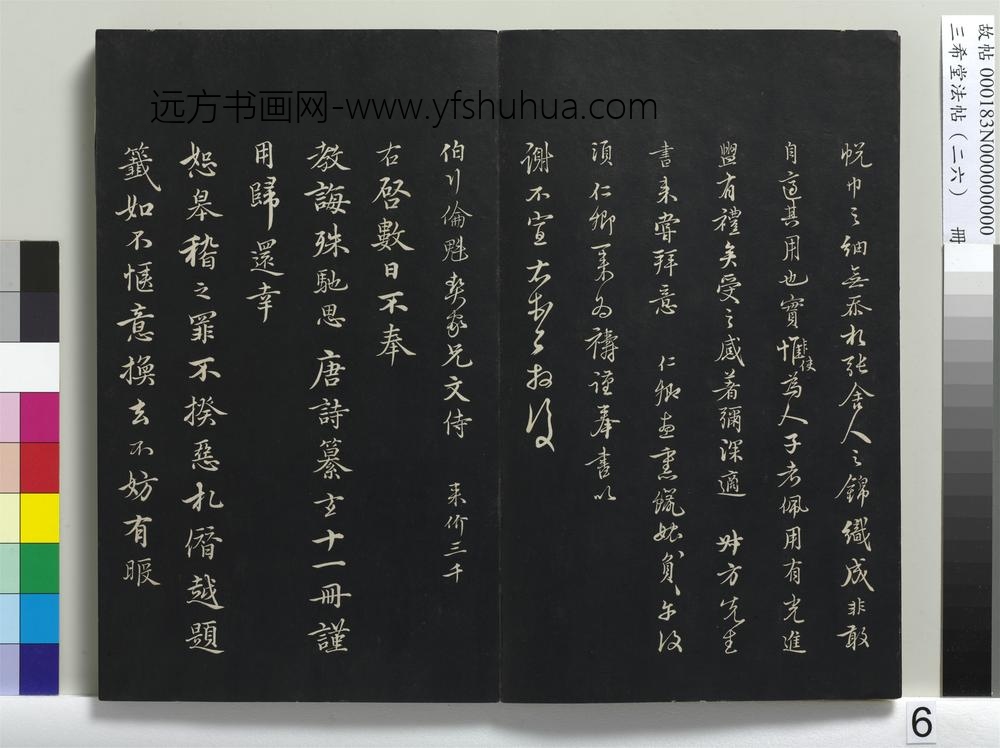 帨巾之細無忝於張舍人之錦織成非敢
自適其用也實惟使為人子者佩用有光進
豐有禮矣受之感著彌深適 叔方先生
書來嘗拜意 仁卿
須仁卿來為禱謹奉書以
謝不宣
伯 倫魁契家兄文侍 來价三千
右啓數日不奉
教誨殊馳思唐詩纂玄十一冊謹
用歸還幸
恕皋稽之罪不揆惡札僭越題
籤如不愜意換去不妨有暇
远方书画网-www.yfshuhua.com
故帖 000183N000000000
三希堂法帖（二六） 冊
6